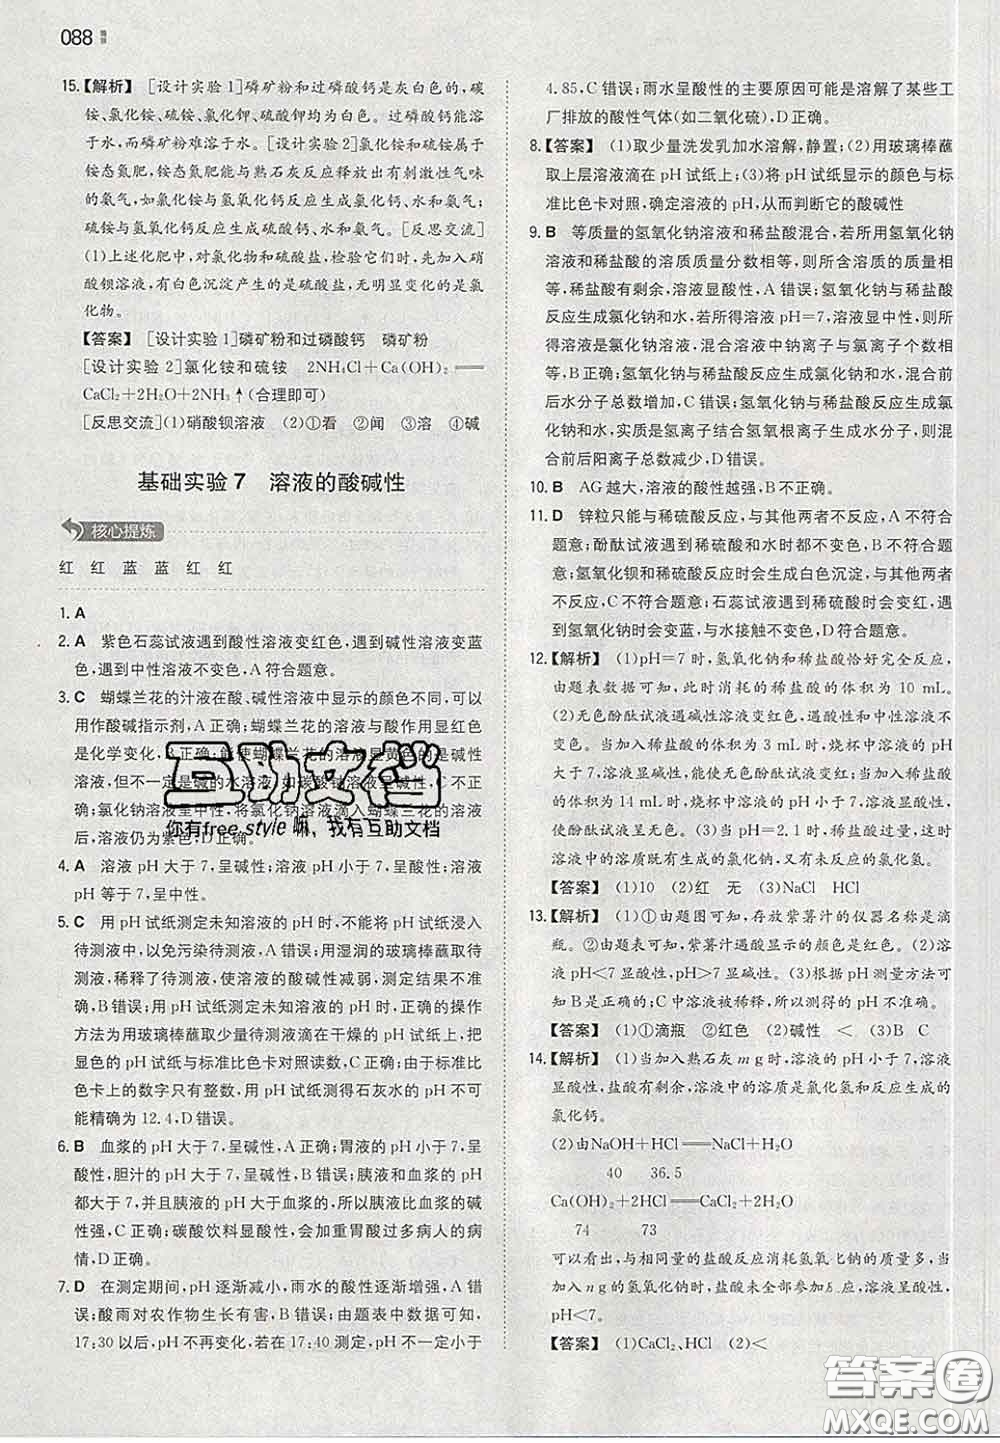 088 精饼
15.【解析】[设计实验1]磷矿粉和过磷酸钙是灰白色的,碳
铵、氯化铵、硫铵、氯化钾、硫酸钾均为白色。过磷酸钙能溶
于水,而磷矿粉难溶于水。[设计实验2]氯化铵与硫铵属于
铵态氮肥,铵态氮肥能与熟石灰反应生成具有刺激性气味
的氨气,如氯化铵与氢氧化钙反应生成氯化钙、水和氨气;
硫铵与氢氧化钙反应生成硫酸钙、水和氨气。[反思交流]
(1)上述化肥中,对氯化物和硫酸盐,检验它们时,先加入硝
酸钡溶液,有白色沉淀产生的是硫酸盐,无明显变化的是氯
化物。
【答案】[设计实验1]磷矿粉和过磷酸钙 磷矿粉
[设计实验2]氯化铵和硫铵 2NH₄Cl+Ca(OH)₂══
CaCl₂+2H₂O+2NH₃↑(合理即可)
[反思交流](1)硝酸钡溶液 (2)①看 ②闻 ③溶 ④碱
基础实验7 溶液的酸碱性
核心提炼
红 红 蓝 蓝 红 红
1. A
2. A 紫色石蕊试液遇到酸性溶液变红色,遇到碱性溶液变蓝
色,遇到中性溶液不变色,A符合题意。
3. C 蝴蝶兰花的汁液在酸、碱性溶液中显示的颜色不同,可以
用作酸碱指示剂,A正确;蝴蝶兰花的溶液与酸作用显红色
是化学变化,B正确;能使蝴蝶兰花的溶液显黄色的是碱性
溶液,但不一定是碱的溶液,如碳酸钠溶液呈碱性,C错
误;氯化钠溶液呈中性,将氯化钠溶液滴入蝴蝶兰花溶液
后,溶液仍为紫色,D正确。
互助文档
你有free style嘛,我有互助文档
4. A 溶液pH大于7,呈碱性;溶液pH小于7,呈酸性;溶液
pH等于7,呈中性。
5. C 用pH试纸测定未知溶液的pH时,不能将pH试纸浸入
待测液中,以免污染待测液,A错误;用湿润的玻璃棒蘸取待
测液,稀释了待测液,使溶液的酸碱性减弱,测定结果不准
确,B错误;用pH试纸测定未知溶液的pH时,正确的操作
方法为用玻璃棒蘸取少量待测液滴在干燥的pH试纸上,把
显色的pH试纸与标准比色卡对照读数,C正确;由于标准比
色卡上的数字只有整数,用pH试纸测得石灰水的pH不可
能精确为12.4,D错误。
6. B 血浆的pH大于7,呈碱性,A正确;胃液的pH小于7,呈
酸性,胆汁的pH大于7,呈碱性,B错误;胰液和血浆的pH
大于7,并且胰液的pH大于血浆的,所以胰液比血浆的碱
性强,C正确;碳酸饮料显酸性,会加重胃酸过多病人的病
情,D正确。
7. D 在测定期间,pH逐渐减小,雨水的酸性逐渐增强,A错
误;酸雨对农作物生长有害,B错误;由题表中数据可知,
17:30以后,pH不再变化,若在17:40测定,pH不一定小于
4.85,C错误;雨水呈酸性的主要原因可能是溶解了某些工
厂排放的酸性气体(如二氧化硫),D正确。
8.【答案】(1)取少量洗发乳加水溶解,静置;(2)用玻璃棒蘸
取上层溶液滴在pH试纸上;(3)将pH试纸显示的颜色与
标准比色卡对照,确定溶液的pH,从而判断它的酸碱性
9. B 等质量的氢氧化钠溶液和稀盐酸混合,若所用氢氧化钠
溶液和稀盐酸的溶质质量分数相等,则所含溶质的质量相
等,稀盐酸有剩余,溶液显酸性,A错误;氢氧化钠与稀盐酸
反应生成氯化钠和水,若所得溶液pH=7,溶液显中性,则所
得溶液是氯化钠溶液,混合溶液中钠离子与氯离子个数相
等,B正确;氢氧化钠与稀盐酸反应生成氯化钠和水,混合前
后水分子总数增加,C错误;氢氧化钠与稀盐酸反应生成氯
化钠和水,实质是氢离子结合氢氧根离子生成水分子,则混
合前后阳离子总数减少,D错误。
10. B AG越大,溶液的酸性越强,B不正确。
11. D 锌粒只能与稀硫酸反应,与其他两者不反应,A不符合
题意;酚酞试液遇到稀硫酸和水时都不变色,B不符合题
意;氢氧化钡和稀硫酸反应时会生成白色沉淀,与其他两者
不反应,C不符合题意;石蕊试液遇到稀硫酸时会变红,遇
到氢氧化钠时会变蓝,与水接触不变色,D符合题意。
12.【解析】(1)pH=7时,氢氧化钠和稀盐酸恰好完全反应,
由题表数据可知,此时消耗的稀盐酸的体积为10 mL。
(2)无色酚酞试液遇碱性溶液变红色,遇酸性和中性溶液不
变色。当加入稀盐酸的体积为3 mL时,烧杯中溶液的pH
大于7,溶液显碱性,能使无色酚酞试液变红;当加入稀盐酸
的体积为14 mL时,烧杯中溶液的pH小于7,溶液显酸性,
使酚酞试液呈无色。(3)当pH=2.1时,稀盐酸过量,这时
溶液中的溶质既有生成的氯化钠,又有未反应的氯化氢。
【答案】(1)10 (2)红 无 (3)NaCl HCl
13.【解析】(1)①由题图可知,存放紫薯汁的仪器名称是滴
瓶。②由题表可知,紫薯汁遇酸显示的颜色是红色。(2)溶
液pH<7显酸性,pH>7显碱性。(3)根据pH测量方法可
知B是正确的;C中溶液被稀释,所测的pH不准确。
【答案】(1)①滴瓶 ②红色 (2)碱性 < (3)B C
14.【解析】(1)当加入熟石灰m g时,溶液的pH小于7,溶液
显酸性,盐酸有剩余,溶液中的溶质是氯化氢和反应生成的
氯化钙。
(2)由NaOH+HCl══NaCl+H₂O
40 36.5
Ca(OH)₂+2HCl══CaCl₂+2H₂O
74 73
可以看出,与相同量的盐酸反应消耗氢氧化钠的质量多,当
加入m g的氢氧化钠时,盐酸未全部参加反应,溶液呈酸性,
pH<7。
【答案】(1)CaCl₂、HCl (2)<
答案圈
MXQE.COM